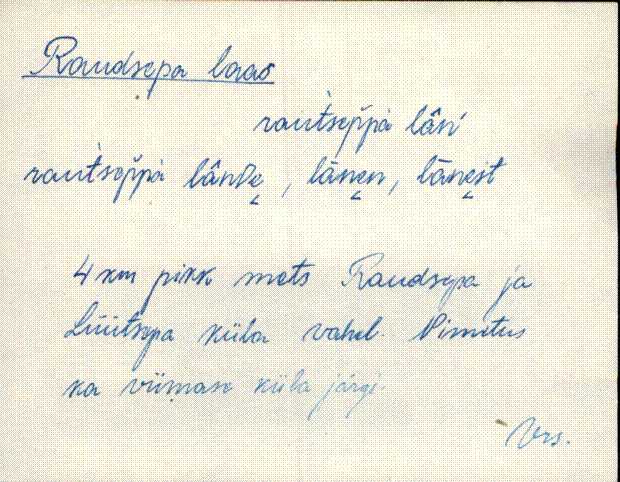 Raudsepa laas
raùtsep̆pà lân'
raùtsep̆pà lânᴅe̬, lāne̬n, lāne̬st
4 km pikk mets Raudsepa ja
Lüütsepa küla vahel. Nimetus
ka viimase küla järgi.
Vrs.